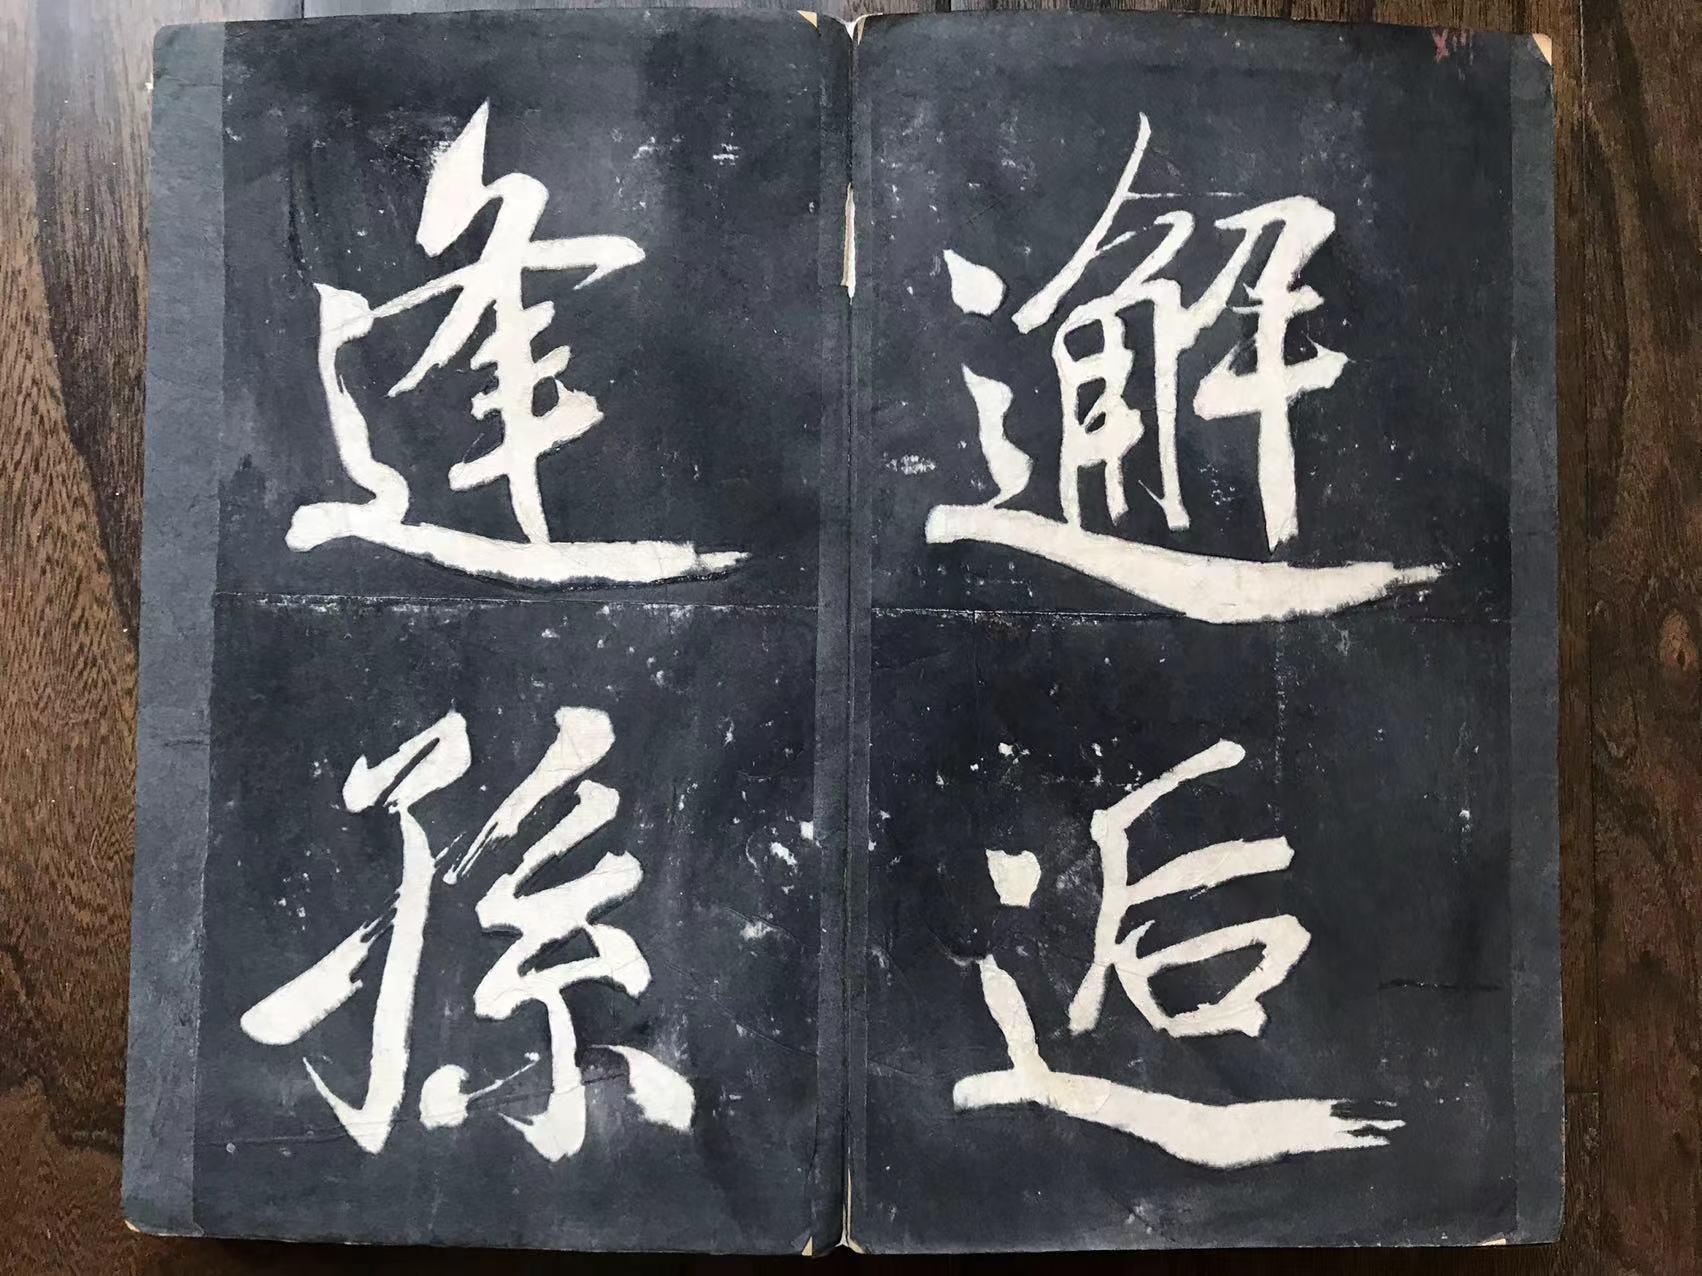 邂逅
逢孫